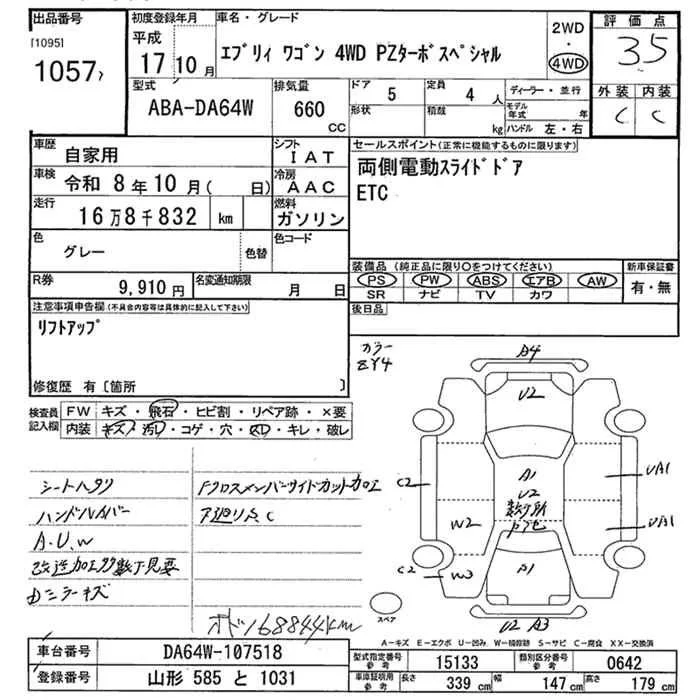 出品番号
[1095]
1057
初度登録年月
平成
17 10 月
車名・グレード
エブリィ ワゴン 4WD PZターボスペシャル
2WD
・
4WD
評価点
3.5
外装 内装
C C
型式
ABA-DA64W
排気量
660
CC
ドア 5
形状
定員 4 人
積載 kg
ディーラー・並行
モデル年式 年
ハンドル 左・右
車歴 自家用
シフト IAT
セールスポイント(正常に機能するものに限ります)
両側電動スライドドア
ETC
車検 令和 8年10月( 日)
冷房 AAC
走行 16万8千832 km
燃料 ガソリン
色 グレー
色替
色コード
装備品(純正品に限り○をつけてください)
PS PW ABS エアB AW
SR ナビ TV カワ
新車保証書
有・無
R券 9,910円
名変通知期限 月 日
後日品
注意事項申告欄(不具合内容等は具体的に記入して下さい)
リフトアップ
修復歴 有〔箇所 〕
カラー
ZY4
検査員記入欄
FW キズ・飛石・ヒビ割・リペア跡・×要
内装 キズ・汚レ・コゲ・穴・スレ・キレ・破レ
シートヘタリ
ハンドルハイバー
A.U.W
改造加工多数下見要
Dミラーキズ
Fクロスメンバーサイドカット加工
下廻り点C
オドソ68844km
A4
U2
A1
U2
数ヶ所
A1
C2
W2
C2
W3
UA1
UA1
U2 A3
スペア
A−キズ E−エクボ U−凹み W−補修跡 S−サビ C−腐食 XX−交換済
車台番号 DA64W-107518
登録番号 山形 585 と 1031
型式指定番号 参考 15133
類別区分番号 参考 0642
車庫証明用 参考 長さ 339 cm 幅 147 cm 高さ 179 cm